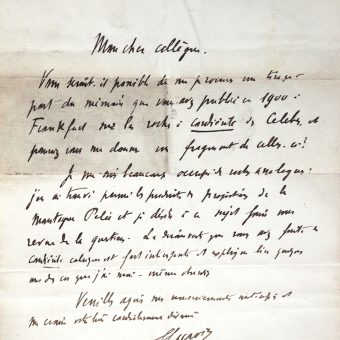 Mon cher collègue.
Vous serait-il possible de me procurer un tirage à
part du mémoire que vous avez publié en 1900 à
Frankfurt sur les roches à cordiérite de Celebes et
pouvez vous me donner un fragment de celles-ci?
Je me suis beaucoup occupé de roches analogues:
j'en ai trouvé parmi les produits de projection de la
Montagne Pelée et je désire à ce sujet faire une
revue de la question. Le mémoire que vous avez fait
cordiérite est fort intéressant et explique
de ce que j'ai moi-même observé
Veuillez agréer mes remerciements anticipés et
me croire votre bien cordialement dévoué